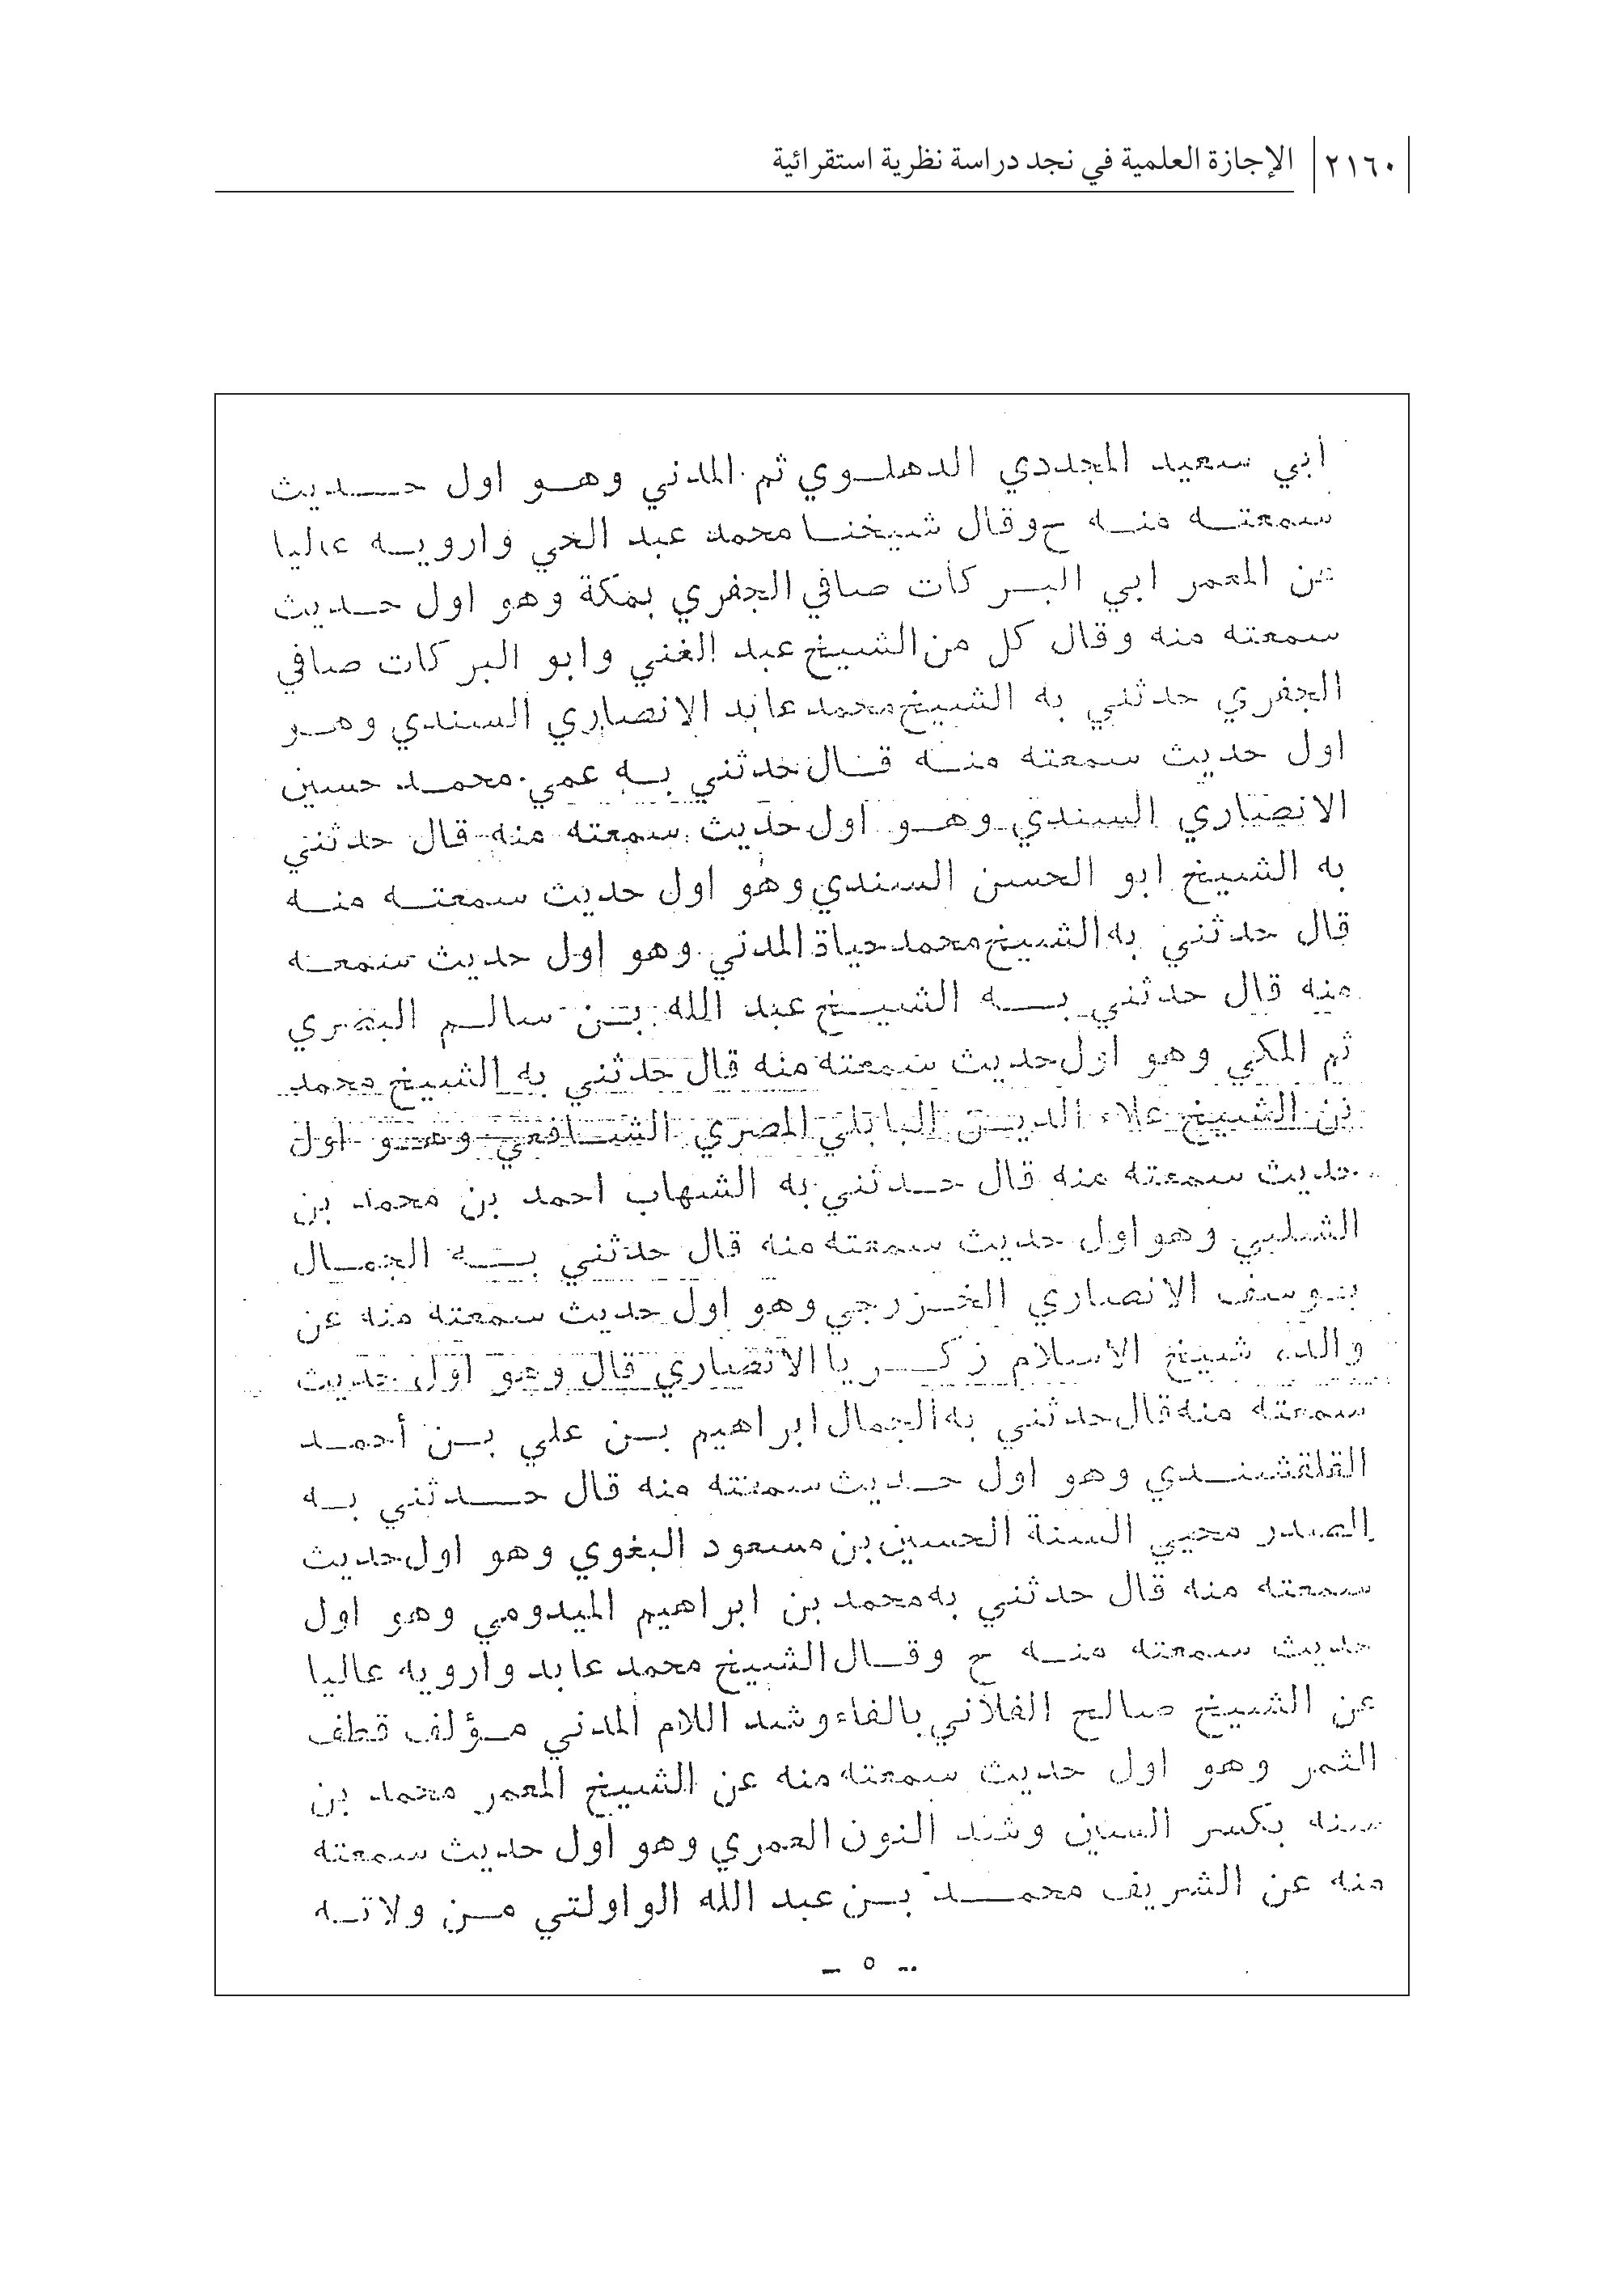 ٢١٦٠ الإجازة العلمية في نجد دراسة نظرية استقرائية
أبي سعيد المجددي الدهلوي ثم المدني وهو اول حديث
سمعته منه ح وقال شيخنا محمد عبد الحي وارويه عاليا
عن المعمر ابي البركات صافي الجفري بمكة وهو اول حديث
سمعته منه وقال كل من الشيخ عبد الغني وابو البركات صافي
الجفري حدثني به الشيخ محمد عابد الانصاري السندي وهو
اول حديث سمعته منه قال حدثني به عمي محمد حسين
الانصاري السندي وهو اول حديث سمعته منه قال حدثني
به الشيخ ابو الحسن السندي وهو اول حديث سمعته منه
قال حدثني به الشيخ محمد حياة المدني وهو اول حديث سمعته
منه قال حدثني به الشيخ عبد الله بن سالم البصري
ثم المكي وهو اول حديث سمعته منه قال حدثني به الشيخ محمد
بن الشيخ علاء الدين البابلي المصري الشافعي وهو اول
حديث سمعته منه قال حدثني به الشهاب احمد بن محمد بن
الشلبي وهو اول حديث سمعته منه قال حدثني به الجمال
يوسف الانصاري الخزرجي وهو اول حديث سمعته منه عن
والده شيخ الاسلام زكريا الانصاري قال وهو اول حديث
سمعته منه قال حدثني به الجمال ابراهيم بن علي بن أحمد
القلقشندي وهو اول حديث سمعته منه قال حدثني به
الصدر محيي السنة الحسين بن مسعود البغوي وهو اول حديث
سمعته منه قال حدثني به محمد بن ابراهيم الميدومي وهو اول
حديث سمعته منه ح وقال الشيخ محمد عابد وارويه عاليا
عن الشيخ صالح الفلاني بالفاء وشد اللام المدني مؤلف قطف
الثمر وهو اول حديث سمعته منه عن الشيخ المعمر محمد بن
سنه بكسر السين وشد النون العمري وهو اول حديث سمعته
منه عن الشريف محمد بن عبد الله الواولتي من ولاته
- ٥ -